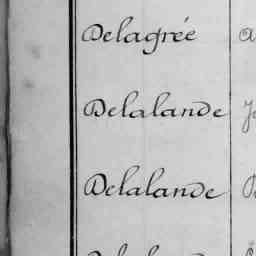 Delagrée
Delalande
Delalande